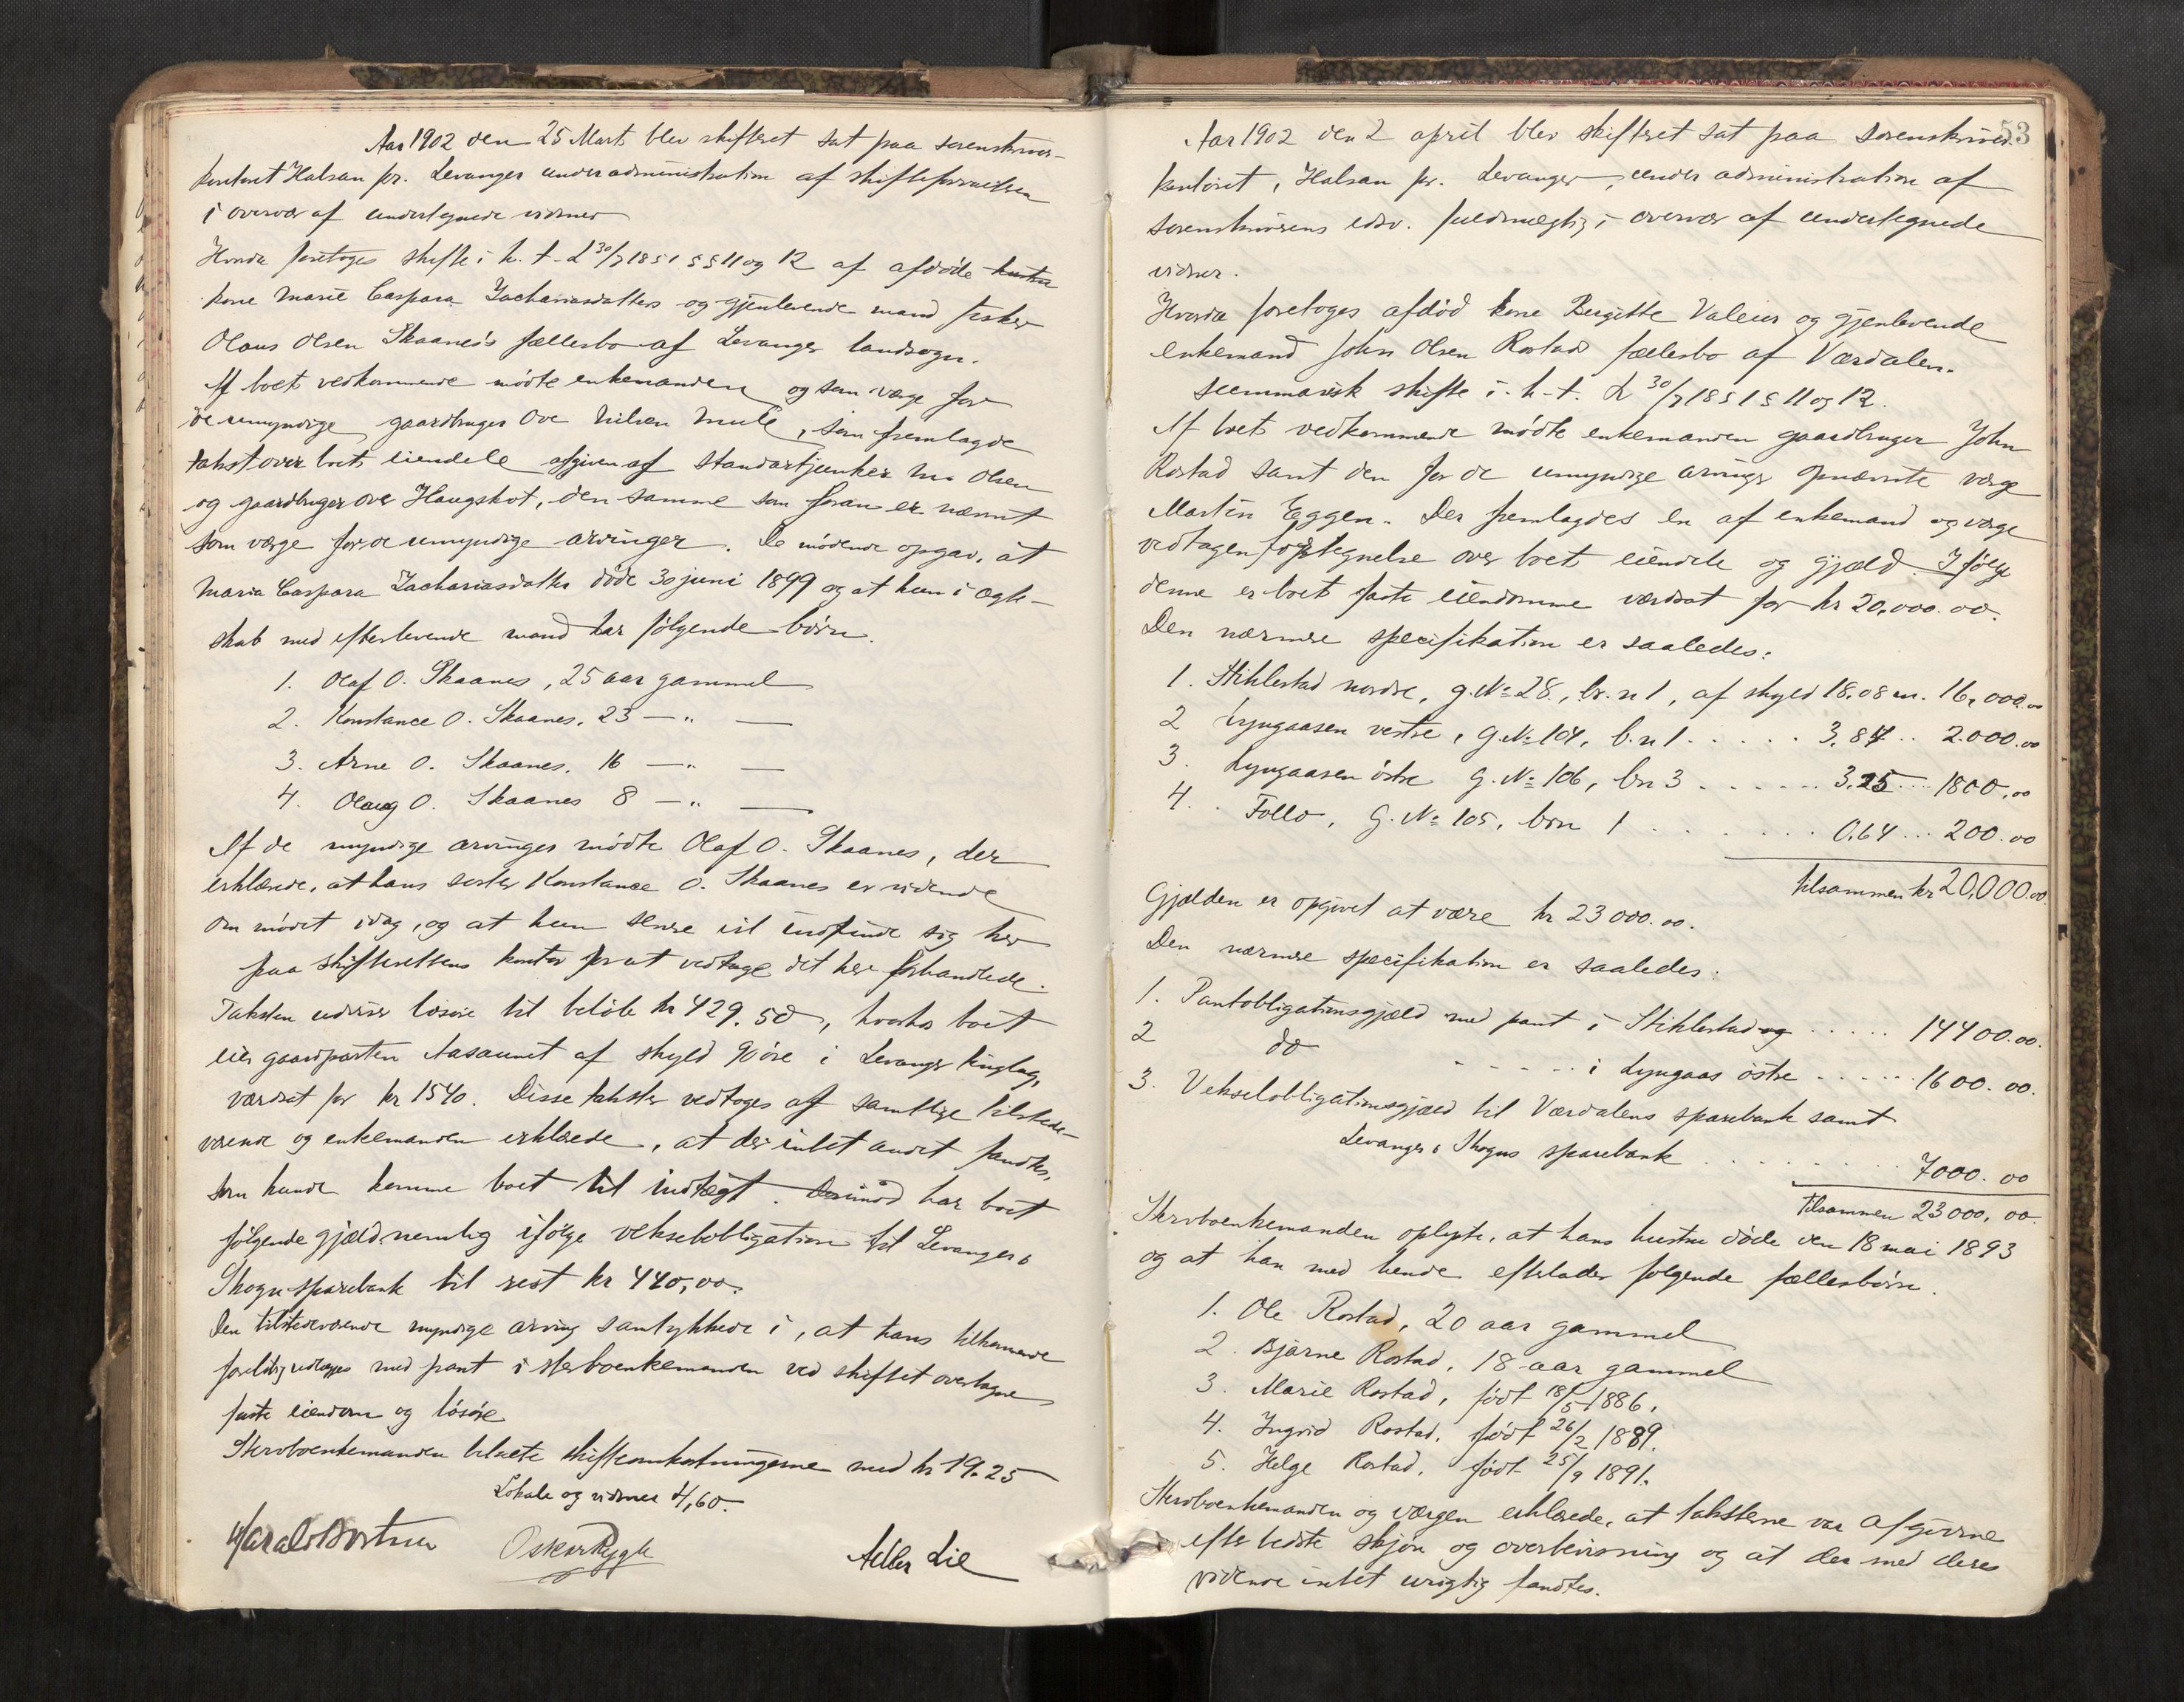 Aar 1902 den 25 Marts blev skifteret sat paa sorenskriver-
kontoret Halsan pr. Levanger under administration af skifteforvalteren
i overvær af undertegnede vidner
Hvorda foretoges skifte i h. t. L 30/7 1851 §§ 11 og 12 af afdøde hustru
kone Marie Caspara Zachariasdatters og gjenlevende mand fisker
Olaus Olsen Skaanes's fællesbo af Levanger landsogn.
Af boets vedkommende mødte enkemanden og som værge for
de umyndige gaardbruger Ove Nilsen Mule, som fremlagde
takst over boets eiendele afgiven af standartjunker M. Olsen
og gaardbruger Ove Haugskot, den samme som foran er nævnt
som værge for de umyndige arvinger. De mødende opgav, at
Maria Caspara Zachariasdatter døde 30 juni 1899 og at hun i ægte-
skab med efterlevende mand har følgende børn.
1. Olaf O. Skaanes, 25 aar gammel
2. Konstance O. Skaanes. 23 — " —
3. Arne O. Skaanes. 16 — " —
4. Olaug O. Skaanes 8 — " —
Af de myndige arvinger mødte Olaf O. Skaanes, der
erklærede, at hans søster Konstance O. Skaanes er vidende
om mødet idag, og at hun senere vil indfinde sig her
paa skifterettens kontor for at vedtage det her forhandlede.
Taksten udviser løsøre til beløb kr 429.50, hvorhos boet
eier gaardparten Aasaunet af skyld 90 øre i Levanger thinglag,
værdsat for kr 1540. Disse takster vedtoges af samtlige tilstede-
værende og enkemanden erklærede, at der intet andet fandtes,
som kunde komme boet til indtægt. Derimod har boet
følgende gjæld nemlig ifølge vekselobligation til Levanger &
Skogn sparebank til rest kr 440,00.
Den tilstedeværende myndige arving samtykkede i, at hans tilkommende
forelodig udlægges med pant i sterboenkemanden ved skiftet overtagne
faste eiendom og løsøre
Sterboenkemanden betalte skifteomkostningerne med kr 19.25
Lokale og vidner 4,60.
Harald Bostrøm Oskar Rygh Adler Lie
53
Aar 1902 den 2 april blev skifteret sat paa sorenskriver
kontoret, Halsan pr. Levanger, under administration af
sorenskriverens edsv. fuldmægtig i overvær af undertegnede
vidner.
Hvorda foretoges afdød kone Bergitte Valeur og gjenlevende
enkemand John Olsen Rostads fællesbo af Værdalen.
summarisk skifte i. h. t. L 30/7 1851 § 11 og 12.
Af boets vedkommende mødte enkemanden gaardbruger John
Rostad samt den for de umyndige arvinger opnævnte værge
Martin Eggen. Der fremlagdes en af enkemand og værge
vedtagen fortegnelse over boets eiendele og gjæld. Ifølge
denne er boets faste eiendomme værdsat for kr 20,000.00.
Den nærmere specifikation er saaledes:
1. Stiklestad nordre, g.№ 28., br.n 1, af skyld 18.08 m. 16,000.00
2 Lyngaasen vestre, g.№ 104, b.n 1 . . . . . 3,87 .. 2.000.00
3. Lyngaasen østre g. № 106, brn 3 . . . . . . 3.25 ... 1800,00
4. Follo, g. № 105, brn 1 . . . . . . . 0,64 ... 200.00
tilsammen kr 20,000.00.
Gjælden er opgivet at være kr 23 000.00.
Den nærmere specifikation er saaledes:
1. Pantobligationsgjæld med pant i Stiklestad og . . . . . 14400.00.
2 do - - - - - i Lyngaas østre . . . . . 1600.00.
3. Vekselobligationsgjæld til Værdalens sparebank samt
Levanger & Skogns sparebank . . . . . . . . . 7000.00
Tilsammen 23000,00.
Sterboenkemanden oplyste, at hans hustru døde den 18 mai 1893
og at han med hende efterlader følgende fællesbørn.
1. Ole Rostad, 20 aar gammel
2. Bjarne Rostad, 18 aar gammel
3. Marie Rostad, født 18/5 1886.
4. Ingrid Rostad, født 26/2 1889.
5. Helge Rostad, født 25/9 1891.
Sterboenkemanden og værgen erklærede, at taksterne var afgivne
efter bedste skjøn og overbevisning og at der med deres
vidende intet urigtig fandtes.